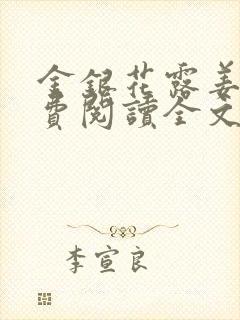 金銀花露姜
費閱讀全文
李宣良